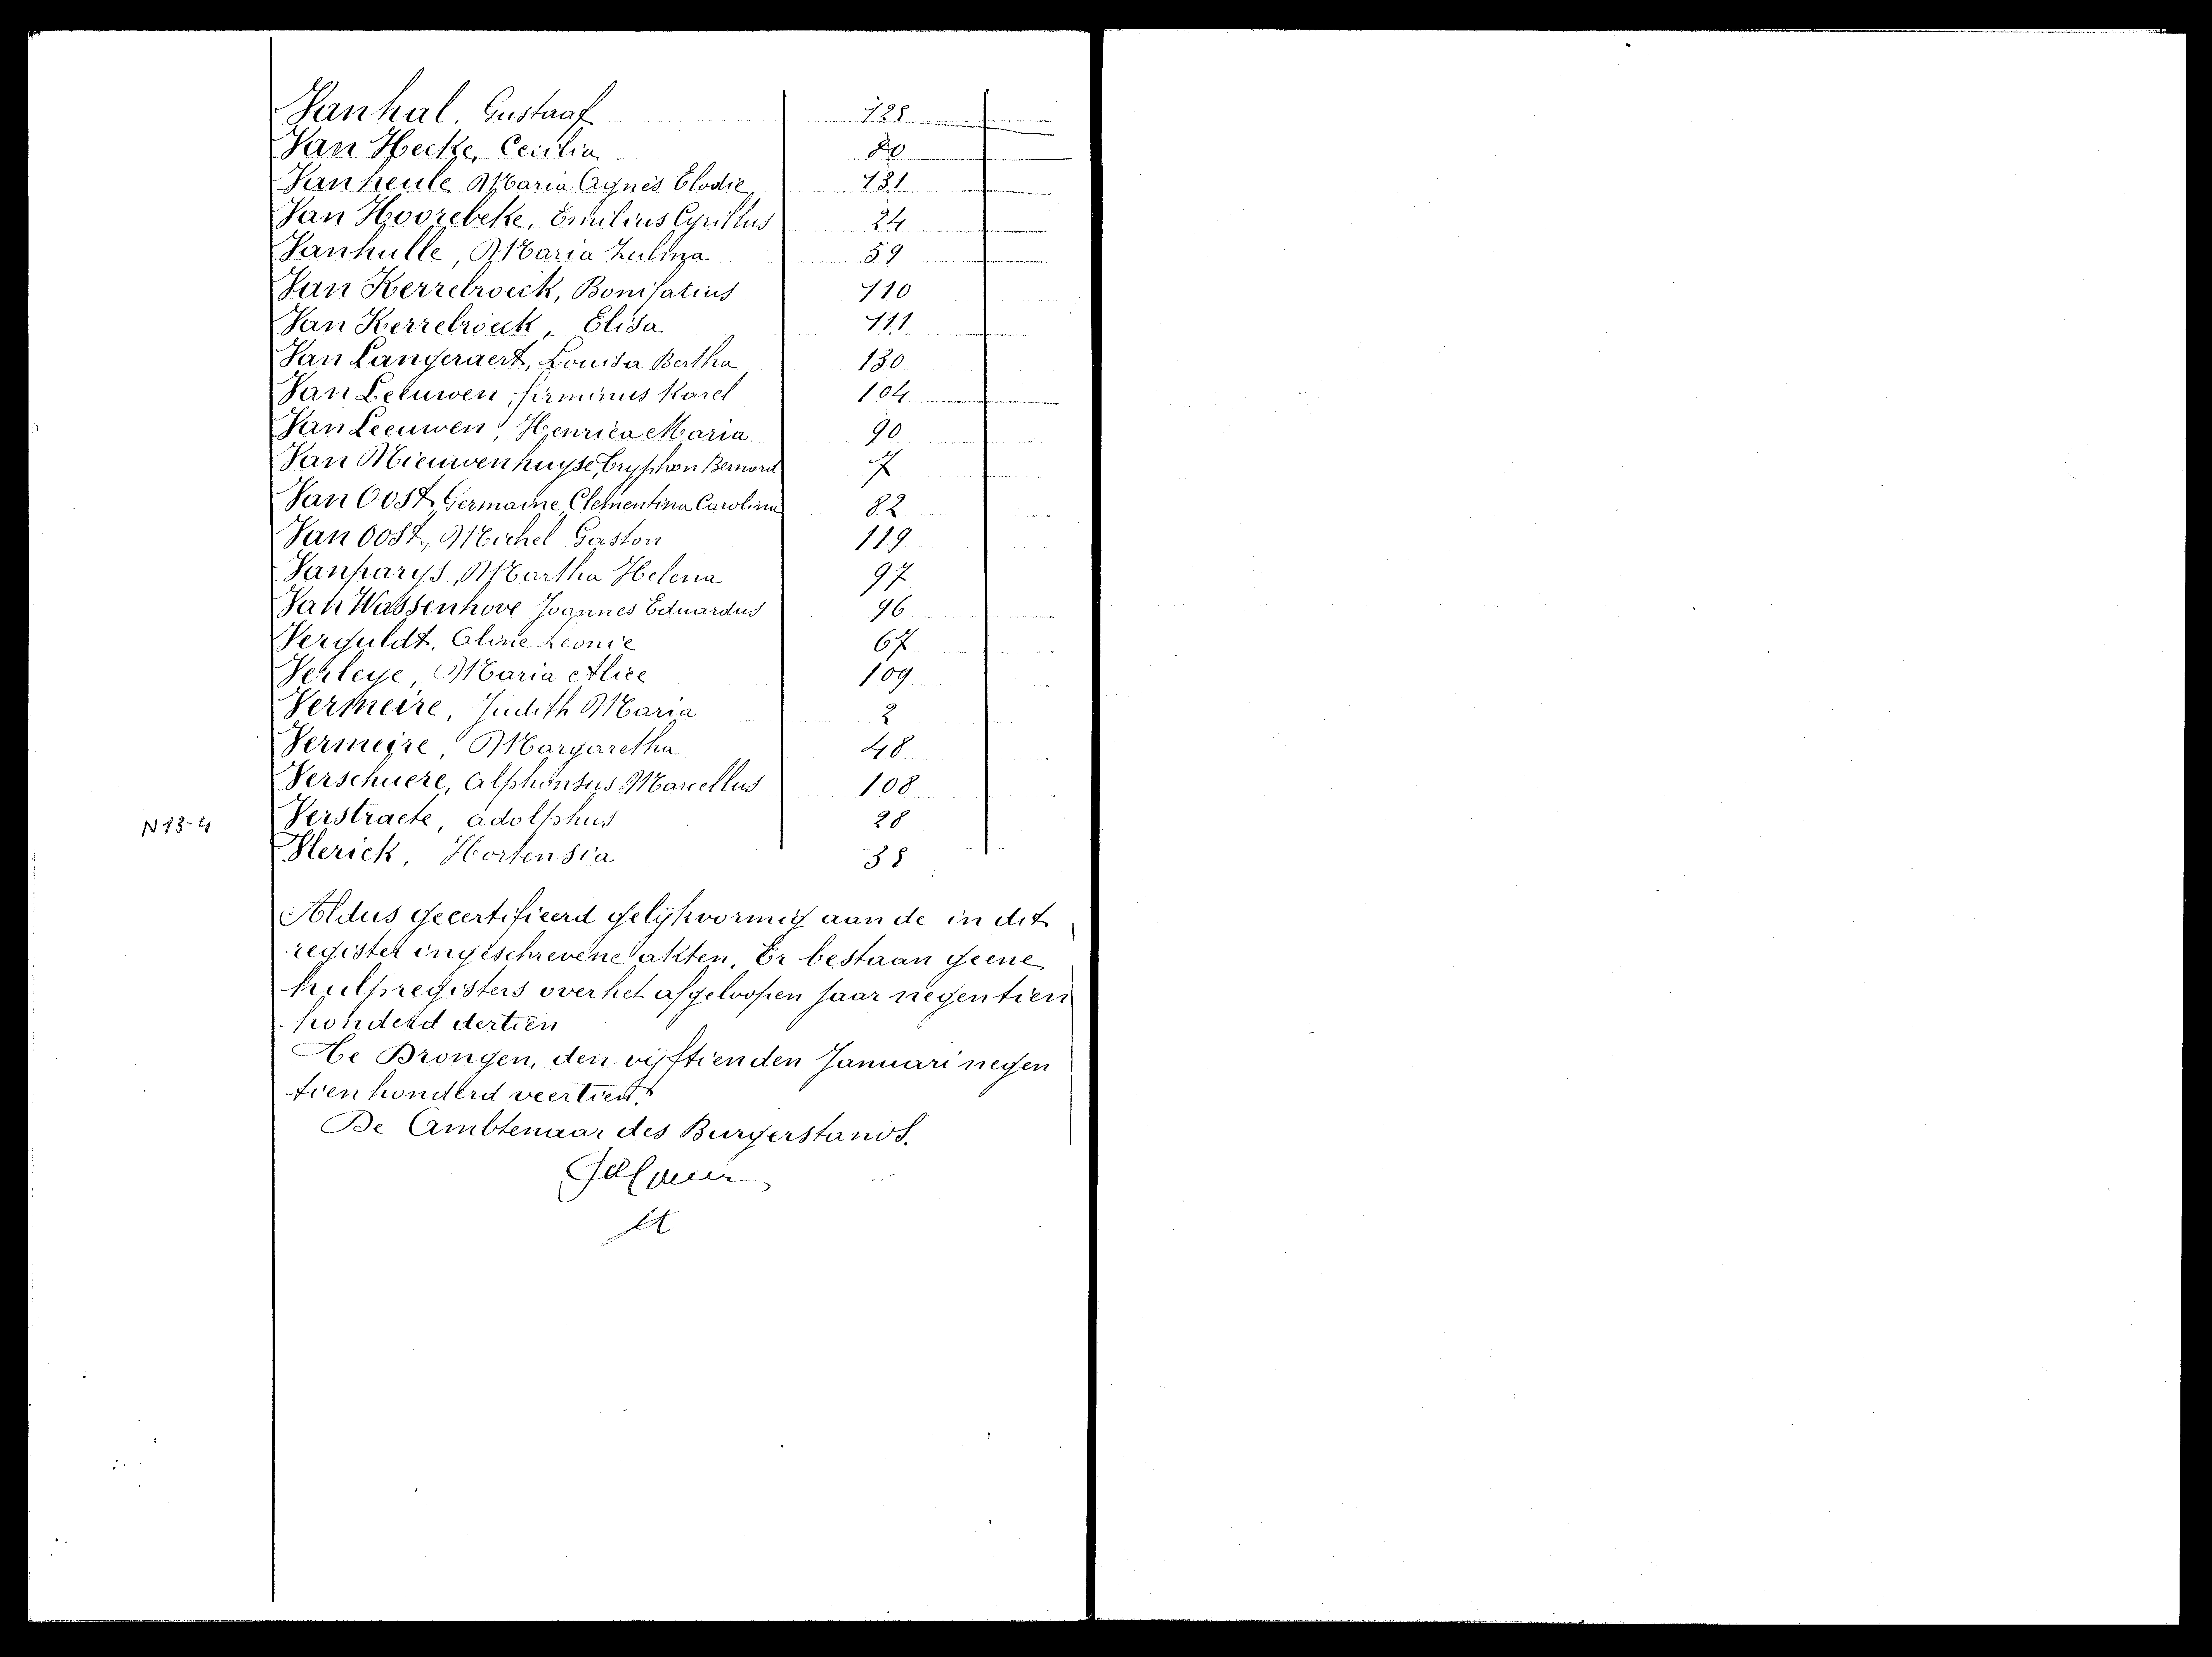 Vanhal, Gustaaf 128
Van Hecke, Cecilia 80
Vanheule Maria Agnes Elodie 131
Van Hoorebeke, Emilius Cyrillus 24
Vanhulle, Maria Zulma 59
Van Kerrebroeck, Bonifatius 110
Van Kerrebroeck, Elisa 111
Van Langeraert, Louisa Bertha 130
Van Leeuwen, Firminus Karel 104
Van Leeuwen, Henrica Maria 90
Van Nieuwenhuyse, Tryphon Bernard 7
Van Oost, Germaine, Clementina Carolina 82
Van Oost, Michel Gaston 119
Vanparys, Martha Helena 97
Van Wassenhove Joannes Eduardus 96
Verguldt, Aline Leonie 67
Verleye, Maria Alice 109
Vermeire, Judith Maria 2
Vermeire, Margaretha 48
Verschuere, Alphonsus Marcellus 108
N 13-4 Verstraete, Adolphus 28
Vlerick, Hortensia 38
Aldus gecertifieerd gelijkvormig aan de in dit
register ingeschrevene akten. Er bestaan geene
hulpregisters over het afgeloopen jaar negentien
honderd dertien
Te Drongen, den vijftienden Januari negen
tien honderd veertien.
De Ambtenaar des Burgerstands.